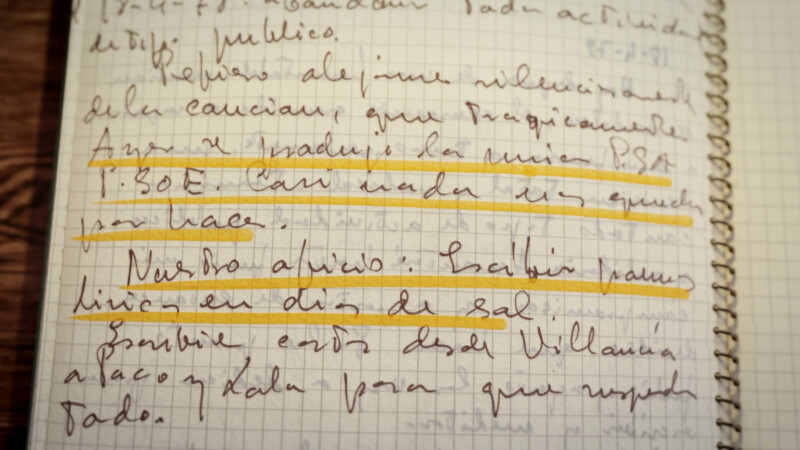 18-4-78. Abandonar toda actividad
de tipo publico.
Prefiero alejarme silenciosamente
de la cancion, que tragicamente.
Ayer se produjo la union P.SA
P.SOE. Casi nada nos queda
por hacer.
Nuestro oficio: Escribir poemas
liricos en dias de sol.
Escribir carta desde Villancia
a Paco y Lala para que
todo.